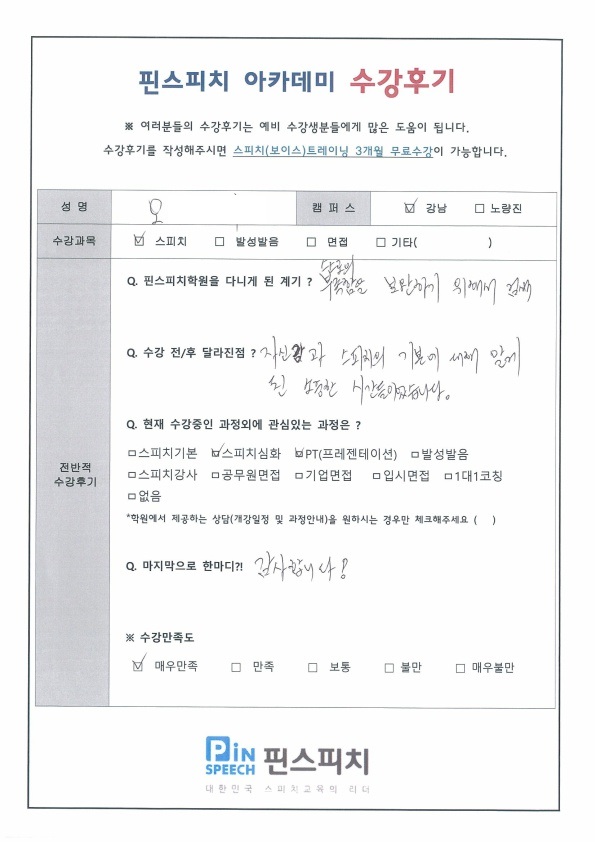 핀스피치 아카데미 수강후기
※ 여러분들의 수강후기는 예비 수강생분들에게 많은 도움이 됩니다.
수강후기를 작성해주시면 스피치(보이스)트레이닝 3개월 무료수강이 가능합니다.
성 명 오 캠 퍼 스 ☑ 강남 □ 노량진
수강과목 ☑ 스피치 □ 발성발음 □ 면접 □ 기타( )
Q. 핀스피치학원을 다니게 된 계기 ?
부족함을 보완하기 위해서
Q. 수강 전/후 달라진점 ? 자신감과 스피치의 기본에
시간들이었습니다.
Q. 현재 수강중인 과정외에 관심있는 과정은 ?
□스피치기본 ☑스피치심화 ☑PT(프레젠테이션) □발성발음
전반적
수강후기
□스피치강사 □공무원면접 □기업면접 □입시면접 □1대1코칭
□없음
*학원에서 제공하는 상담(개강일정 및 과정안내)을 원하시는 경우만 체크해주세요 ( )
Q. 마지막으로 한마디?! 감사합니다!
※ 수강만족도
☑ 매우만족 □ 만족 □ 보통 □ 불만 □ 매우불만
PiN SPEECH 핀스피치
대한민국 스피치교육의 리더